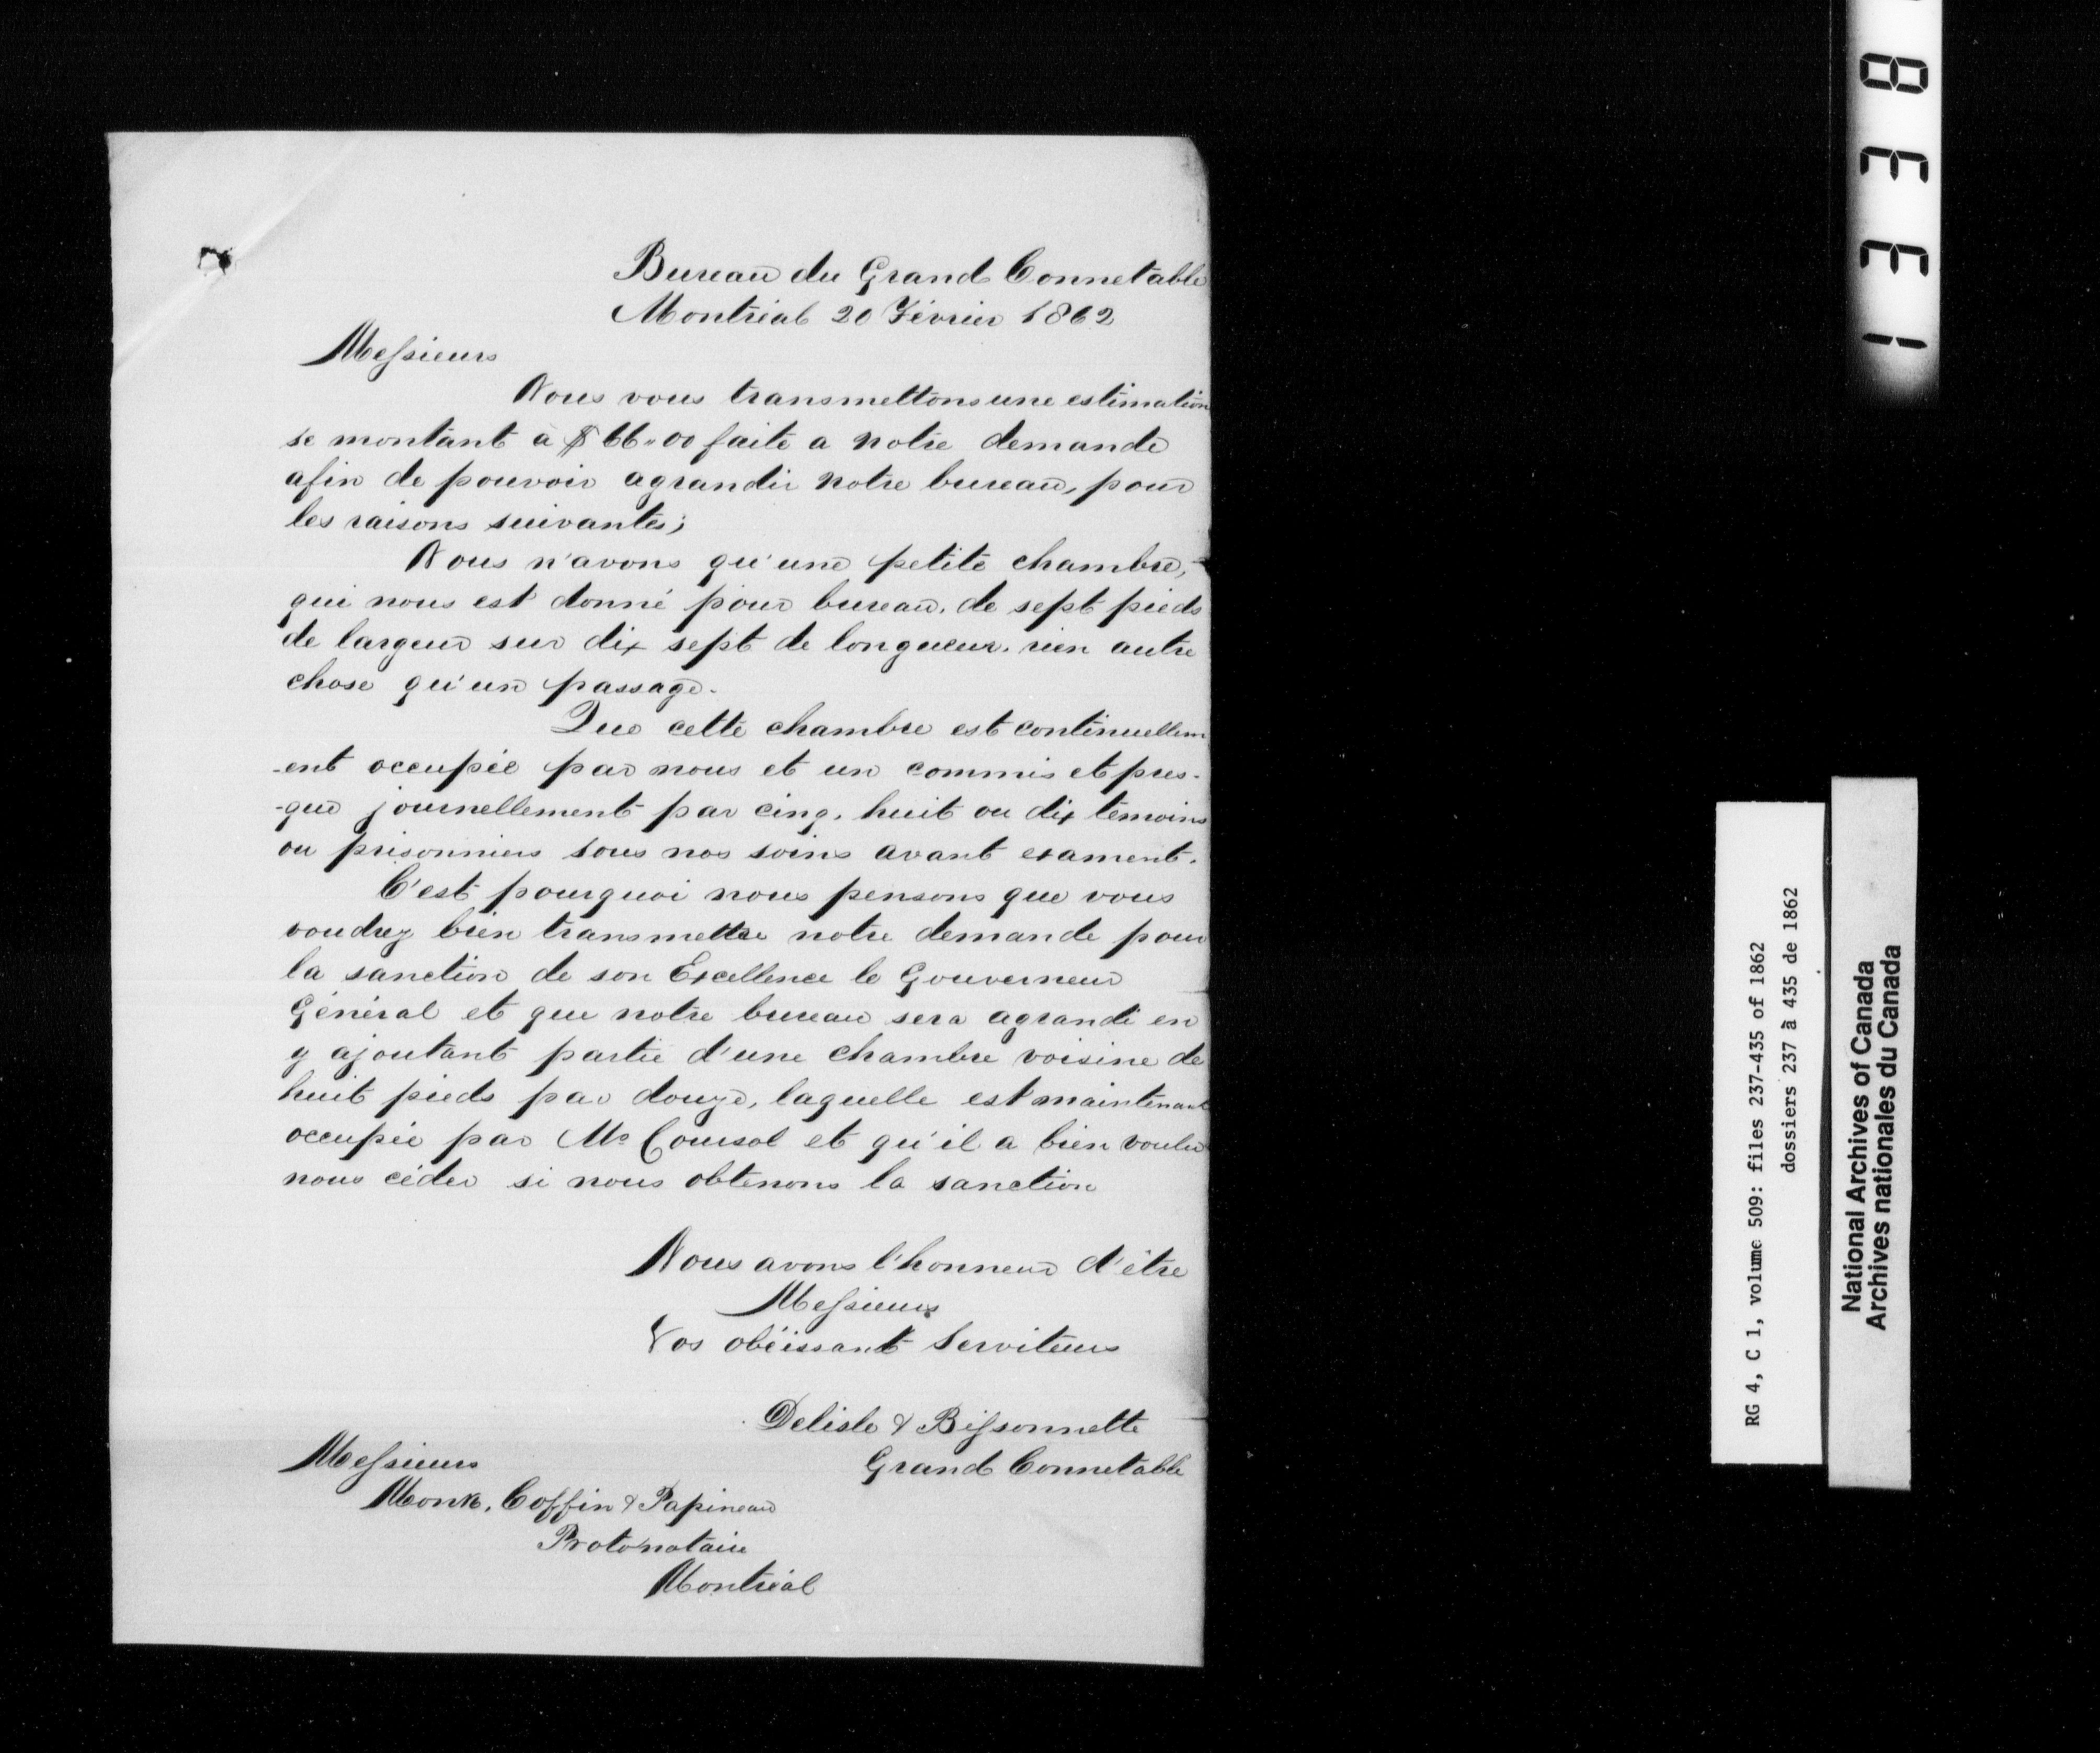 Bureau du Grand Connetable
Montréal 20 Février 1862
Messieurs
Nous vous transmettons une estimation
se montant à $66.00 faite a notre demande
afin de pouvoir agrandir notre bureau, pour
les raisons suivantes;
Nous n'avons qu'une petite chambre,
qui nous est donné pour bureau, de sept pieds
de largeur sur dix sept de longueur. rien autre
chose qu'un passage.
Que cette chambre est continuellem
-ent occupée par nous et un commis et pres-
-que journellement par cinq, huit ou dix témoins
ou prisonniers sous nos soins avant exament.
C'est pourquoi nous pensons que vous
voudrez bien transmettre notre demande pour
la sanction de son Excellence le Gouverneur
Général et que notre bureau sera agrandi en
y ajoutant partie d'une chambre voisine de
huit pieds par douze, laquelle est maintenant
occupée par Mr Coursol et qu'il a bien voulu
nous céder si nous obtenons la sanction
Nous avons l'honneur d'être
Messieurs
Vos obéissant Serviteurs
Delisle & Bissonnette
Grand Connetable
Messieurs
Monk, Coffin & Papineau
Protonotaire
Montréal
1338
RG 4, C 1, volume 509: files 237-435 of 1862
dossiers 237 à 435 de 1862
National Archives of Canada
Archives nationales du Canada